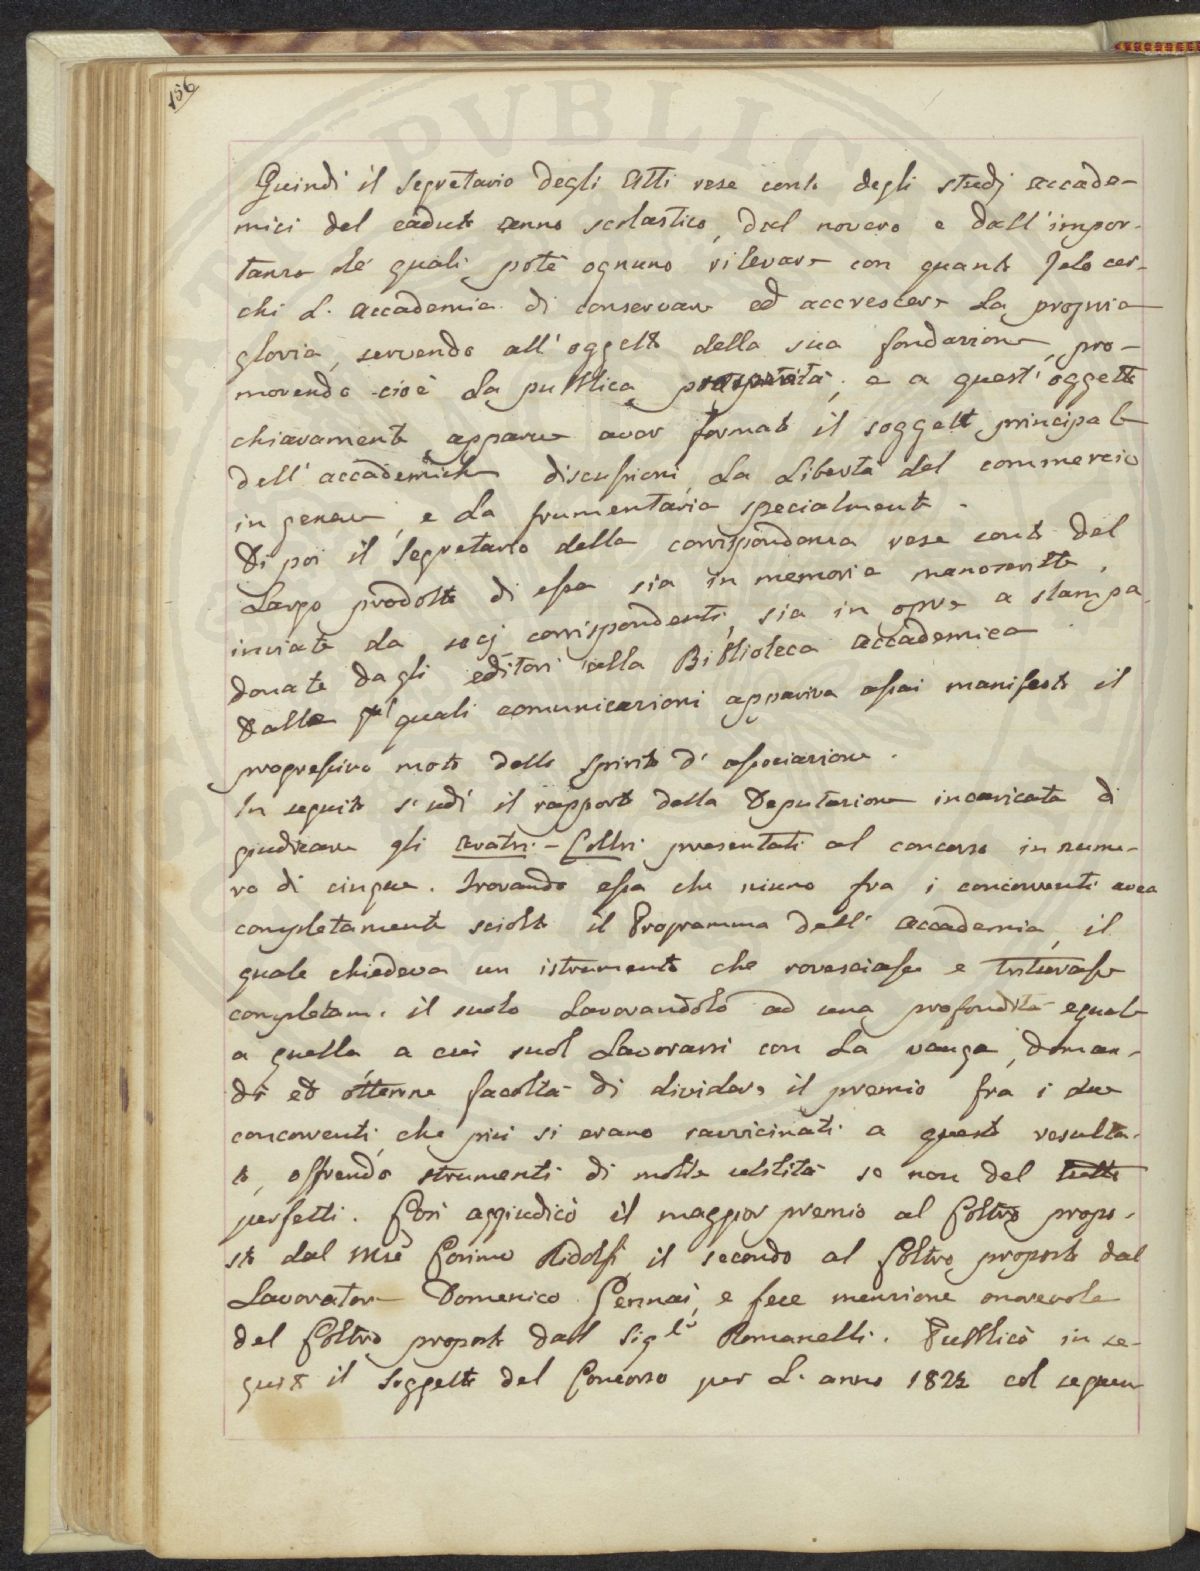 156
Quindi il Segretario degli Atti rese conto degli studj accade-
mici del caduto anno scolastico, dal novero e dall'impor-
tanza de' quali potè ognuno rilevare con quanto zelo cer-
chi l'accademia di conservare ed accrescere la propria
gloria, servendo all'oggetto della sua fondazione, pro-
movendo cioè la pubblica prosperità; e a quest'oggetto
chiaramente apparve aver formato il soggetto principale
dell'accademiche discussioni, la libertà del commercio
in genere, e la frumentaria specialmente.
Di poi il Segretario della corrispondenza rese conto del
largo prodotto di essa sia in memorie manoscritte,
inviate da socj corrispondenti, sia in opere a stampa
donate dagli editori alla Biblioteca accademica.
Dalle quali comunicazioni appariva assai manifesto il
progressivo moto dello spirito d'associazione.
In seguito s'udì il rapporto della Deputazione incaricata di
giudicare gli aratri-coltri presentati al concorso in nume-
ro di cinque. Trovando essa che niuno fra i concorrenti avea
completamente sciolto il Programma dell'accademia, il
quale chiedeva un istrumento che rovesciasse e tritasse
completam. il suolo lavorandolo ad una profondità eguale
a quella a cui suol lavorarsi con la vanga, doman-
dò ed ottenne facoltà di dividere il premio fra i due
concorrenti, che più si erano ravvicinati a questo resulta-
to, offrendo strumenti di molta utilità se non del tutto
perfetti. Così aggiudicò il maggior premio al Coltro propo-
sto dal Mse Cosimo Ridolfi, il secondo al Coltro proposto dal
Lavoratore Domenico e fece menzione onorevole
del Coltro proposto dal Sigre Romanelli. Pubblicò in se-
guito il soggetto del Concorso per l'anno 1825 col seguen